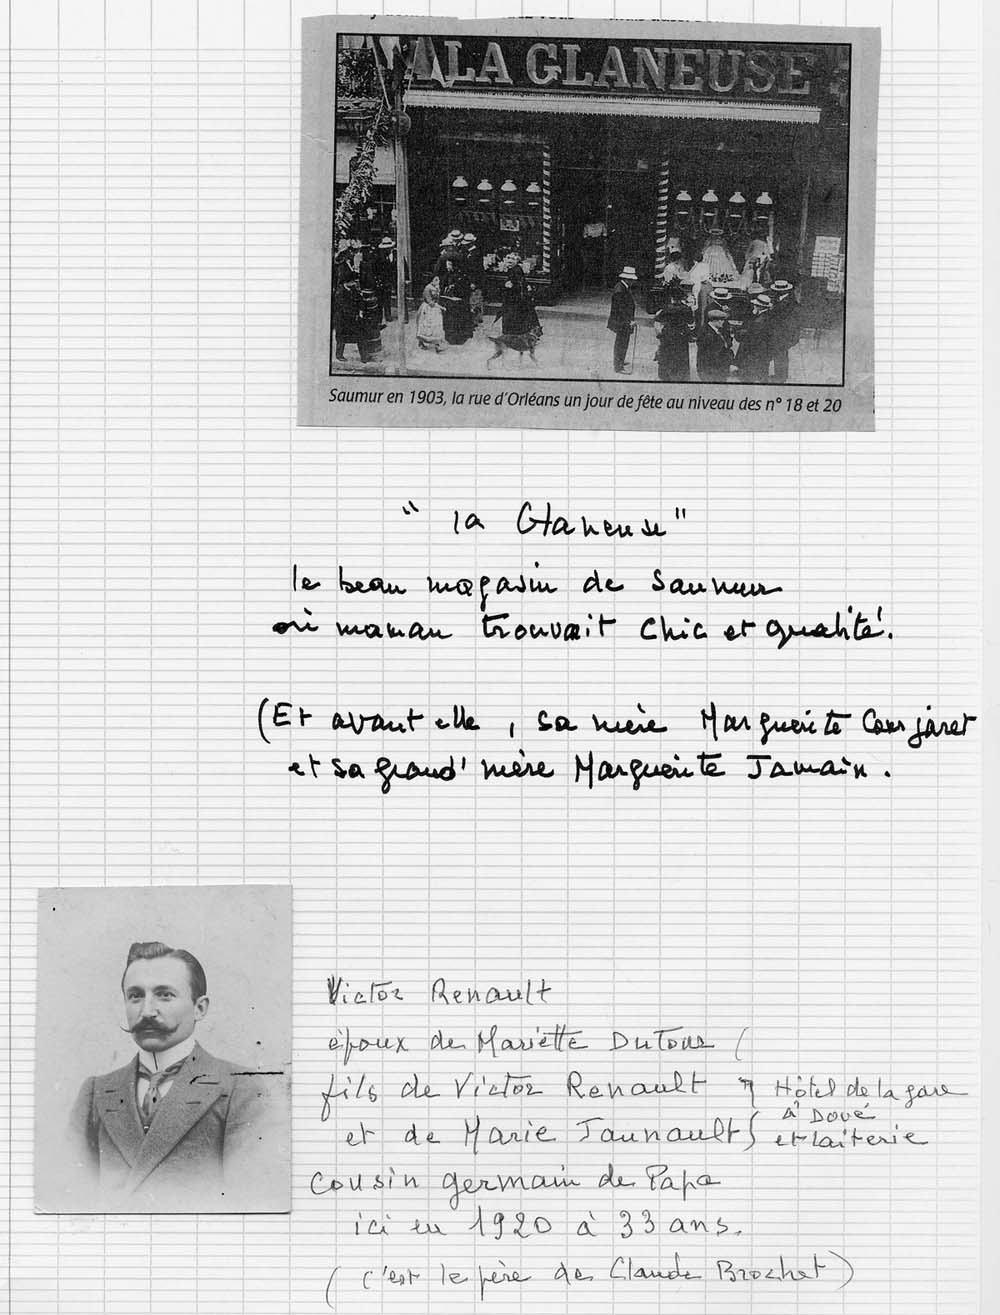 A LA GLANEUSE
Saumur en 1903, la rue d'Orléans un jour de fête au niveau des n° 18 et 20
" la Glaneuse"
le beau magasin de Saumur
où maman trouvait Chic et qualité.
(Et avant elle, sa mère Marguerite Courjaret
et sa grand' mère Marguerite Jamain.
Victor Renault
époux de Mariette Dutour (
fils de Victor Renault } Hôtel de la gare
à Doué
et de Marie Jaunault } et laiterie
cousin germain de Papa
ici en 1920 à 33 ans.
( c'est le père de Claude Brochet )